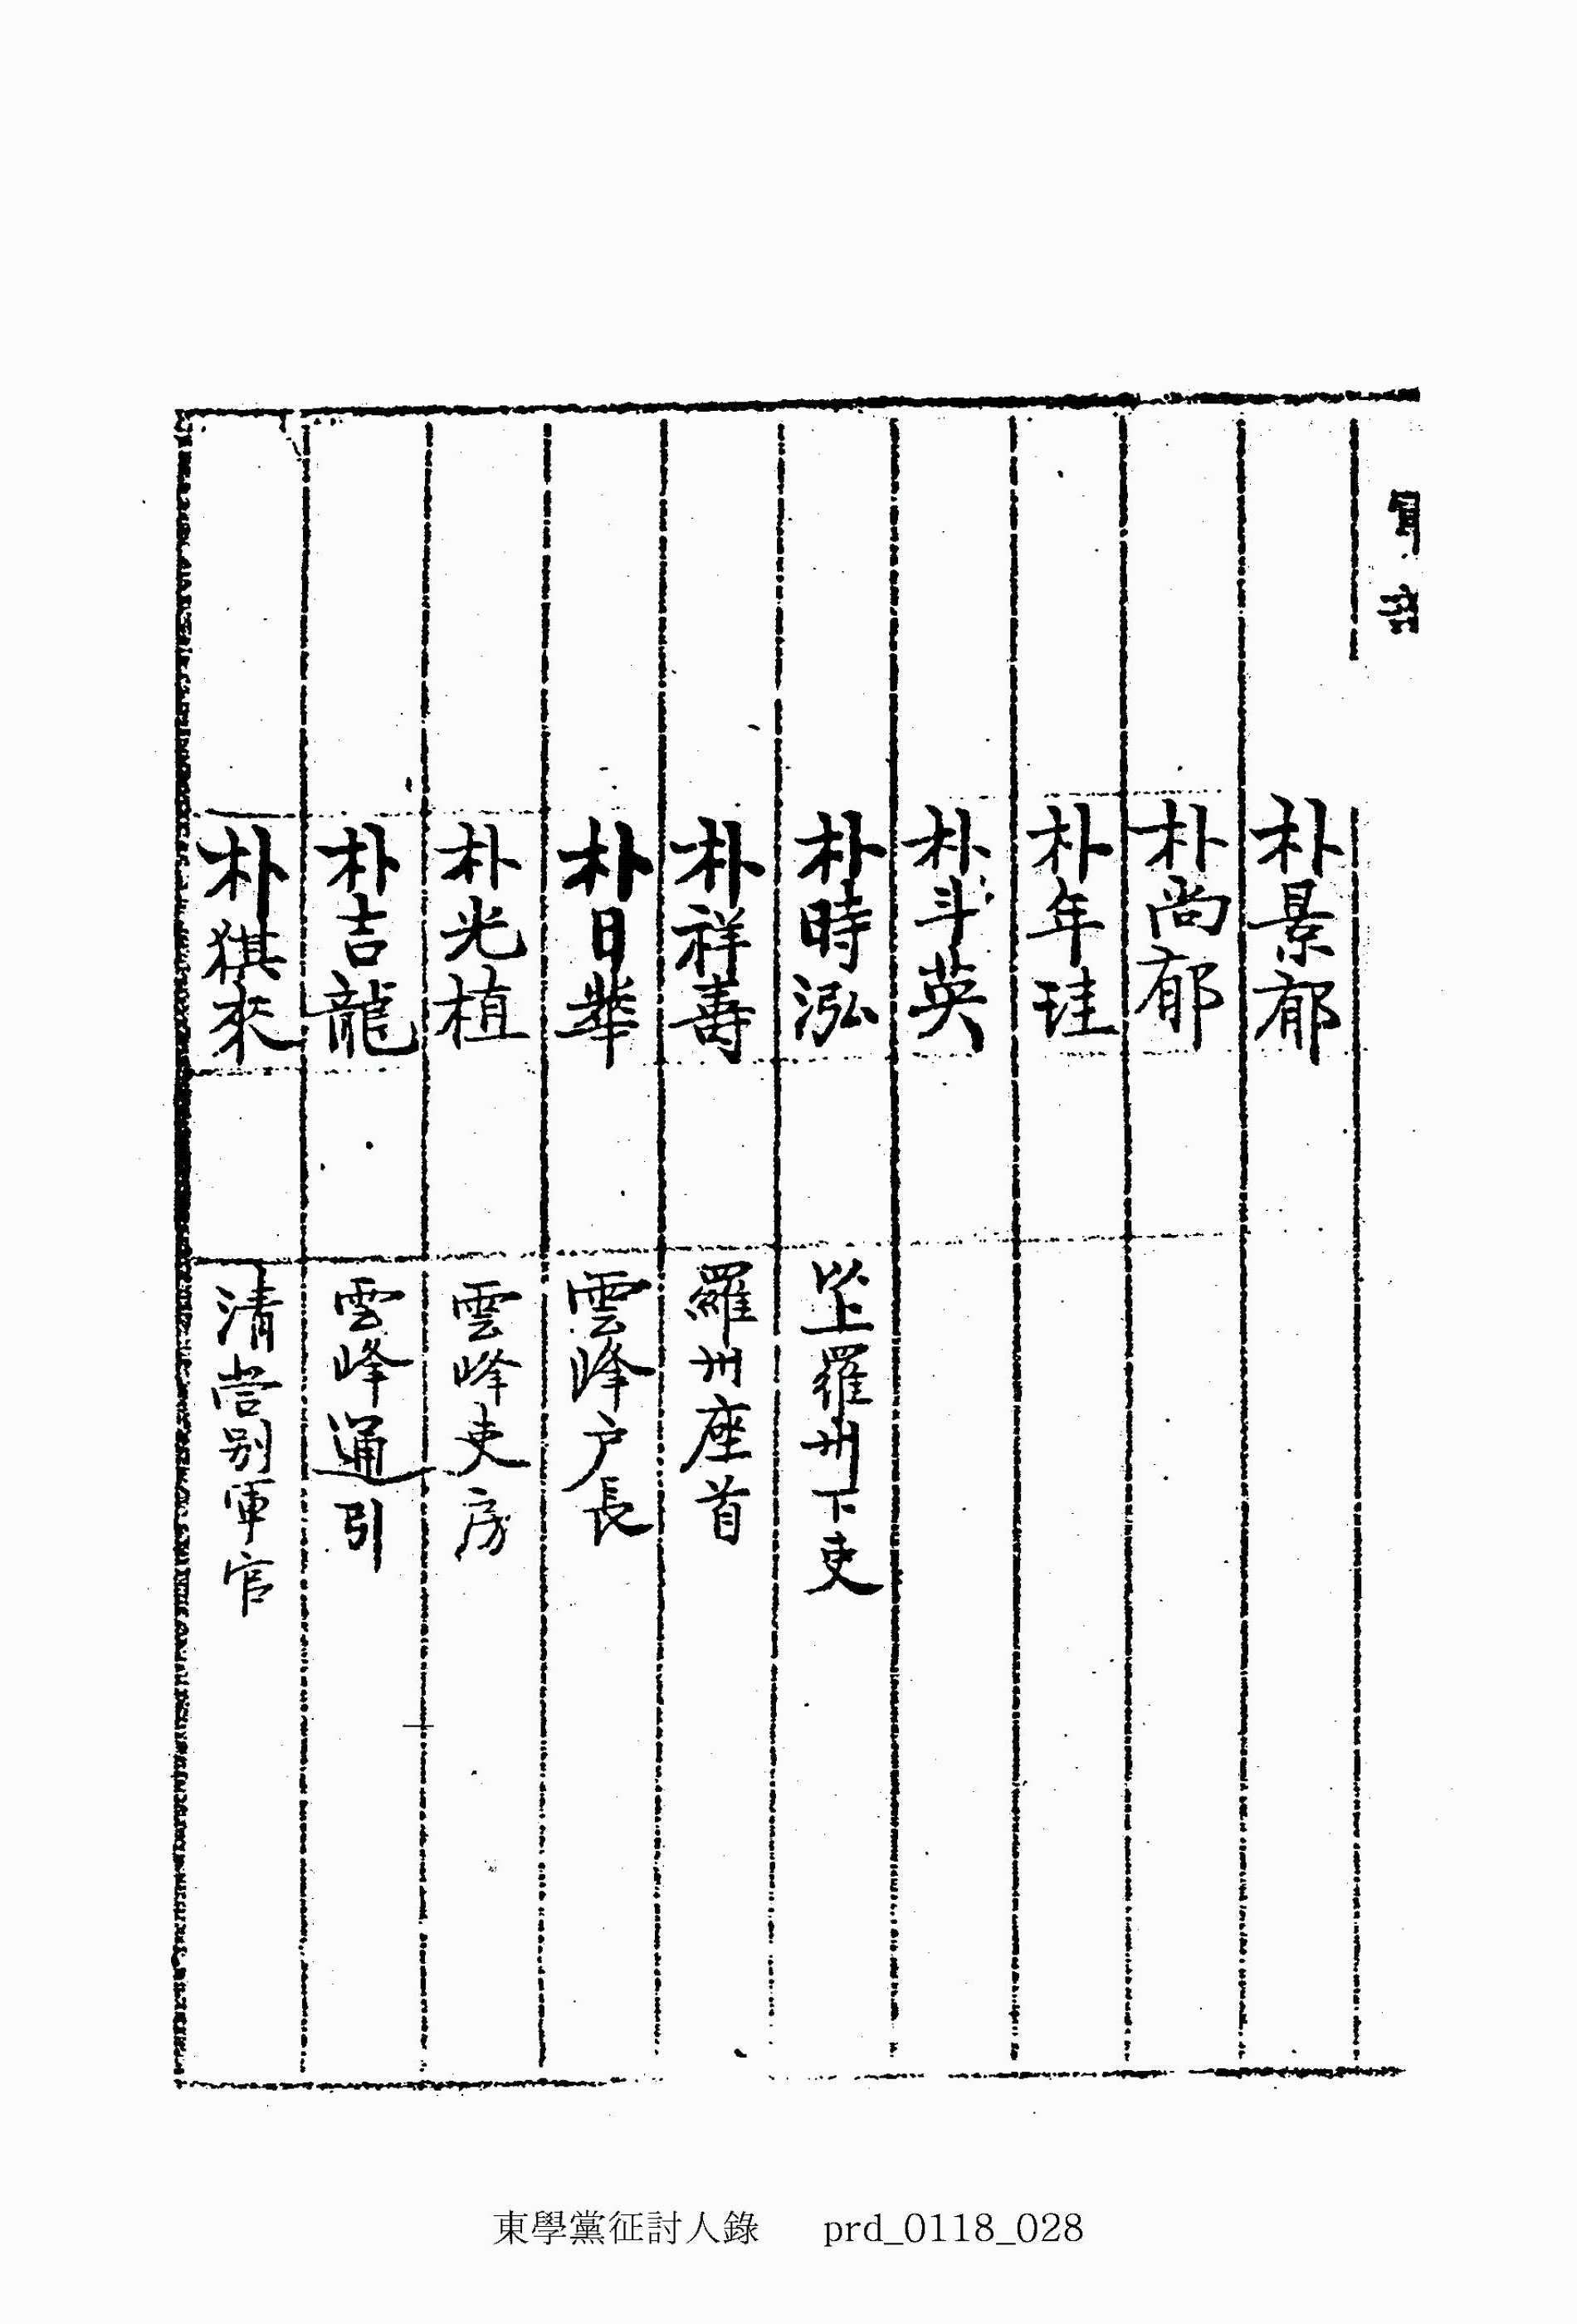 朴景郁
朴尚郁
朴年珪
朴斗英
朴時泓 以上羅州下吏
朴祥壽 羅州座首
朴日華 雲峰戶長
朴光植 雲峰吏房
朴吉龍 雲峰通引
朴猉來 清營別軍官
東學黨征討人錄 prd_0118_028